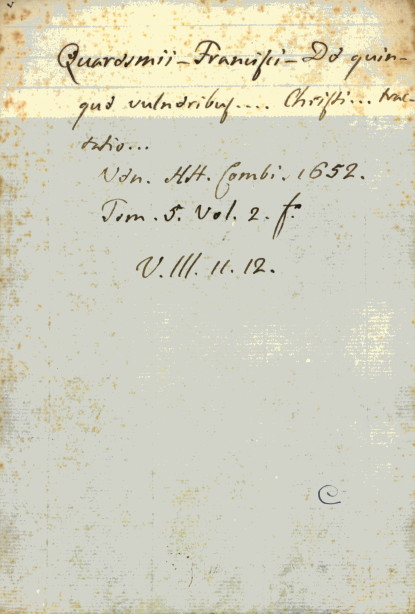 Quaresmii - Francisci - De quin-
que vulneribus.... Christi... trac-
tatio...
Ven. HH. Combi. 1652.
Tom. 5. Vol. 2. f.
V. III. 11. 12.
C